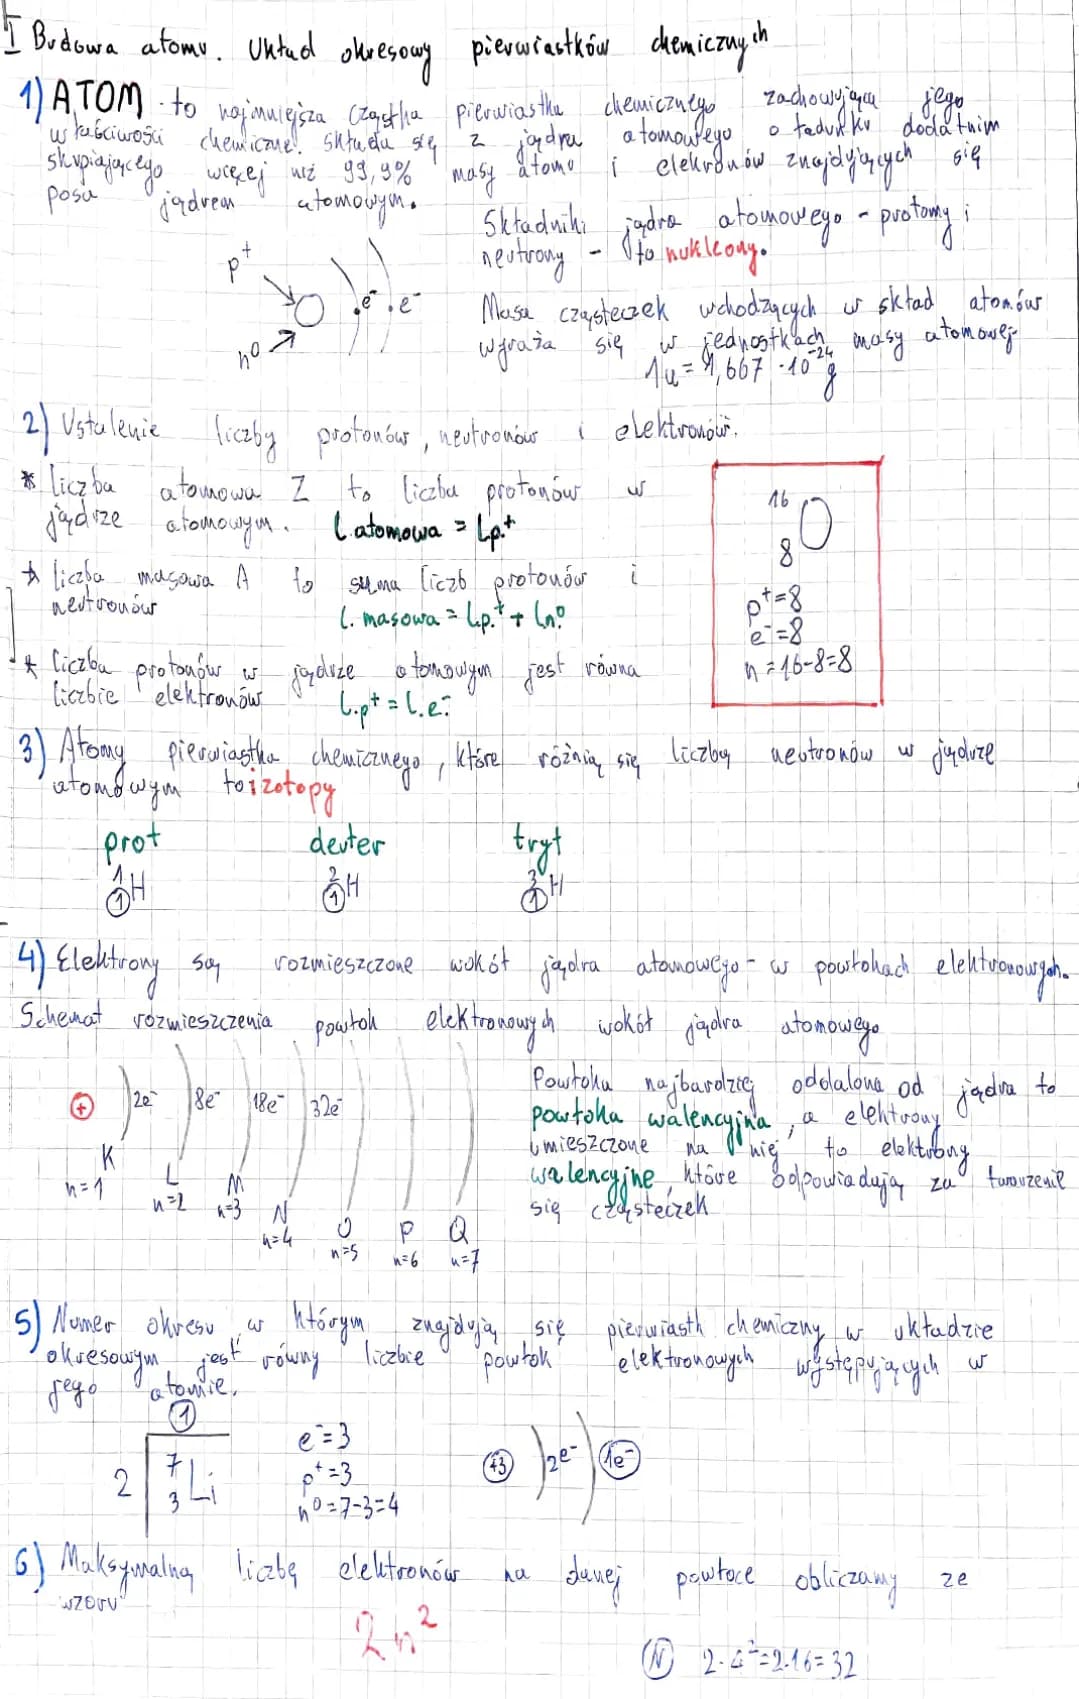 I Budowa atomu. Układ okresowy pierwiastków chemicznych
1) ATOM - to najmniejsza cząstka pierwiastka chemicznego zachowująca jego
właściwości chemiczne. Składa się z jądra atomowego o ładunku dodatnim
skupiającego więcej niż 99,9% masy atomu i elekronów znajdyjących się
poza jądrem atomowym.
Składniki jądra atomowego - protomy i
neutrony - to nukleony.
p+
e- e-
n0
Masa cząsteczek wchodzących w skład atomów
wyraża się w jednostkach masy atomowej
1u = 1,667 · 10^-24 g
2) Ustalenie liczby protonów, neutronów i elektronów.
* liczba atomowa Z to liczba protonów w
jądrze atomowym. l. atomowa = l.p.+
* liczba masowa A to suma liczb protonów i
neutronów
l. masowa = l.p.+ + l.n.0
* liczba protonów w jądrze atomowym jest równa
liczbie elektronów l.p+ = l.e.-
16
O
8
p+=8
e-=8
n=16-8=8
3) Atomy pierwiastka chemicznego, które różnią się liczbą neutronów w jądrze
atomowym to izotopy
prot deuter tryt
1 1 H 2 1 H 3 1 H
4) Elektrony są rozmieszczone wokół jądra atomowego - w powłokach elektronowych.
Schemat rozmieszczenia powłok elektronowych wokół jądra atomowego
+ 2e- 8e- 18e- 32e-
K L M N O P Q
n=1 n=2 n=3 n=4 n=5 n=6 n=7
Powłoka najbardziej oddalona od jądra to
powłoka walencyjna, a elektrony
umieszczone na niej to elektrony
walencyjne, które odpowiadają za tworzenie
się cząsteczek
5) Numer okresu w którym znajdują się pierwiastk chemiczny w układzie
okresowym jest równy liczbie powłok elektronowych występujących w
jego atomie.
1
2 7 3 Li
e-=3
p+=3
n0=7-3=4
+3 2e- 1e-
6) Maksymalną liczbę elektronów na danej powłoce obliczamy ze
wzoru
2n²
N 2·4²=2·16=32